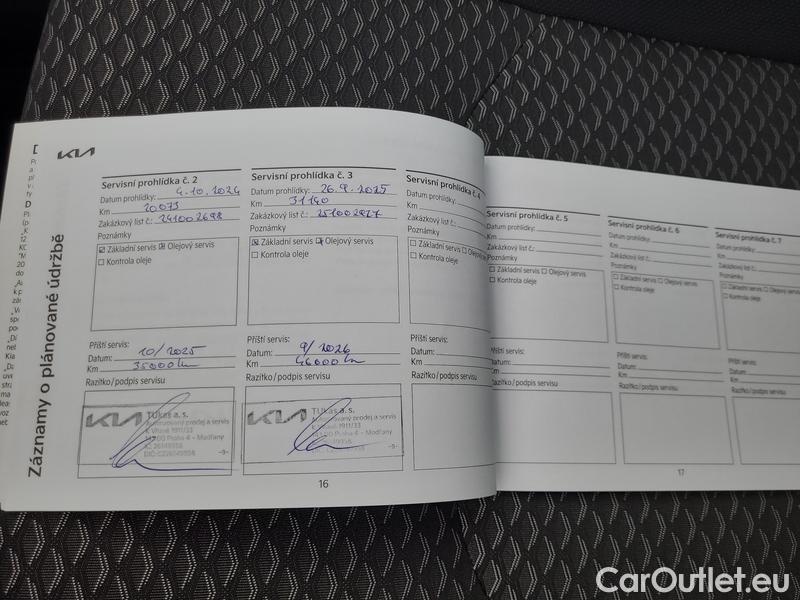 KIA
Záznamy o plánované údržbě
Servisní prohlídka č. 2
Datum prohlídky: 4.10.2024
Km 20073
Zakázkový list č.: 241002698
Poznámky
Základní servis Olejový servis
Kontrola oleje
Příští servis:
Datum: 10/2025
Km 35000 km
Razítko/podpis servisu
KIA TUkas a. s.
Autorizovaný prodej a servis
K Vltavě 1911/33
143 00 Praha 4 - Modřany
-9-
Servisní prohlídka č. 3
Datum prohlídky: 26.9.2025
Km 31140
Zakázkový list č.: 251002927
Poznámky
Základní servis Olejový servis
Kontrola oleje
Příští servis:
Datum: 9/2026
Km 46000 km
Razítko/podpis servisu
KIA TUkas a. s.
Autorizovaný prodej a servis
K Vltavě 1911/33
143 00 Praha 4 - Modřany
-9-
16
Servisní prohlídka č. 4
Datum prohlídky:
Km
Zakázkový list č.:
Poznámky
Základní servis
Kontrola oleje
Příští servis:
Datum:
Km
Razítko/podpis servisu
Servisní prohlídka č. 5
Datum prohlídky:
Km
Zakázkový list č.:
Poznámky
Základní servis Olejový servis
Kontrola oleje
Příští servis:
Datum:
Km
Razítko/podpis servisu
Servisní prohlídka č. 6
Datum prohlídky:
Km
Zakázkový list č.:
Poznámky
Základní servis Olejový servis
Kontrola oleje
Příští servis:
Datum:
Km
Razítko/podpis servisu
Servisní prohlídka č. 7
Datum prohlídky:
Km
Zakázkový list č.:
Poznámky
Základní servis Olejový servis
Kontrola oleje
Příští servis:
Datum:
Km
Razítko/podpis servisu
17
CarOutlet.eu